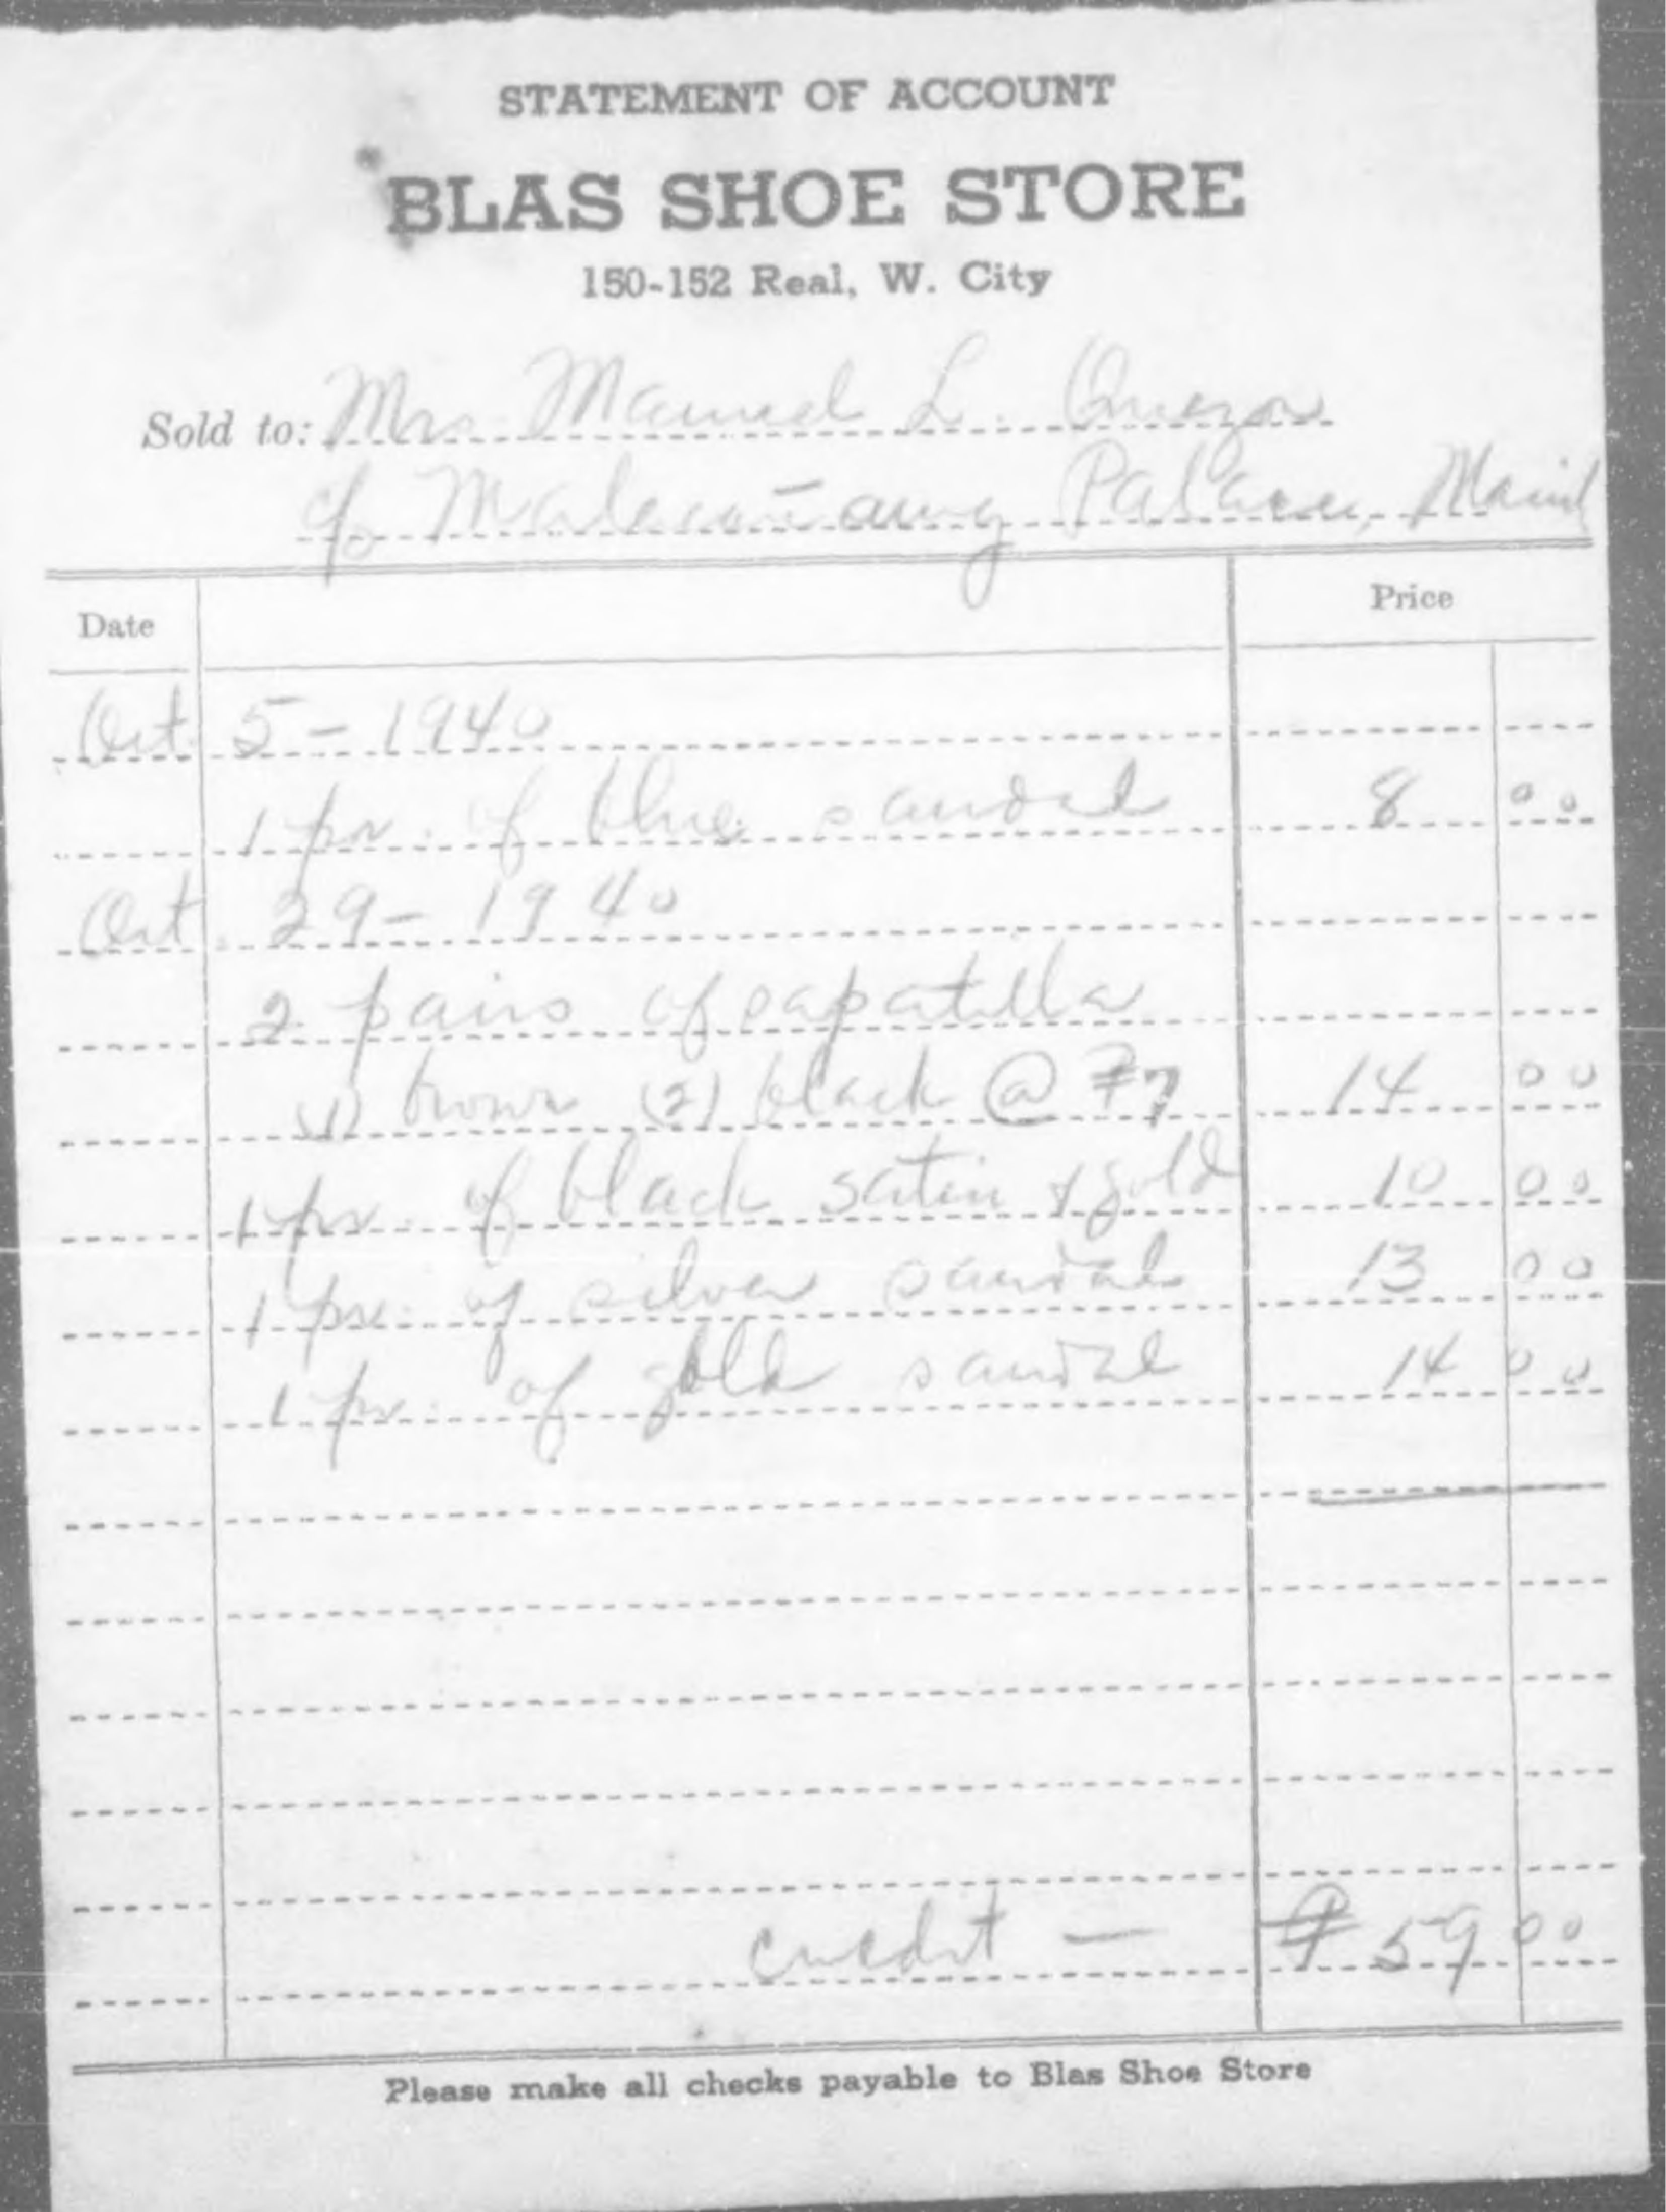 STATEMENT OF ACCOUNT
BLAS SHOE STORE
150-152 Real, W. City
Sold to: Mrs. Manuel L. Quezon
c/o Malacañang Palace, Manil
Date Price
Oct. 5 - 1940
1 pr. of blue sandal 8 00
Oct. 29 - 1940
2 pairs of sapatilla
(1) brown (2) black @ ₱7 14 00
1 pr. of black satin & gold 10 00
1 pr. of silver sandal 13 00
1 pr. of gold sandal 14 00
credit — ₱ 59 00
Please make all checks payable to Blas Shoe Store